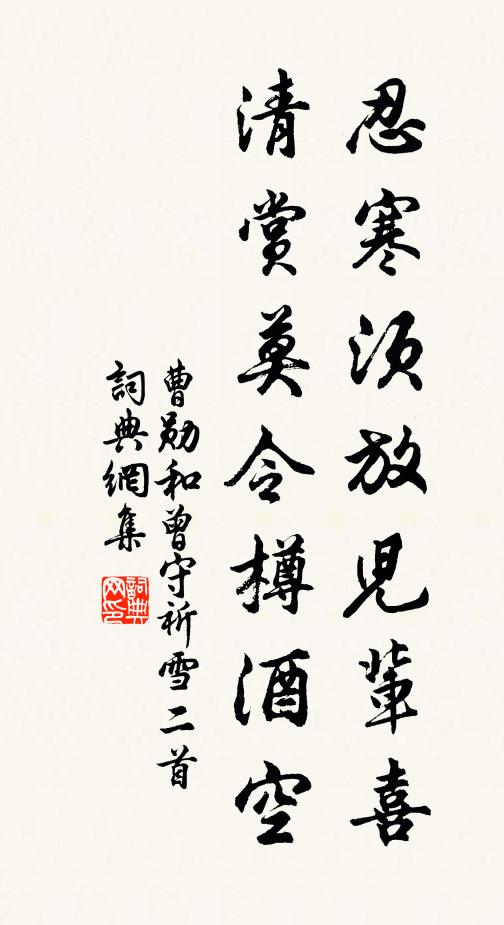 忍寒須放児輩喜
清賞莫令樽酒空
曹勛和曾守祈雪二首
詞典網集
詞典網印